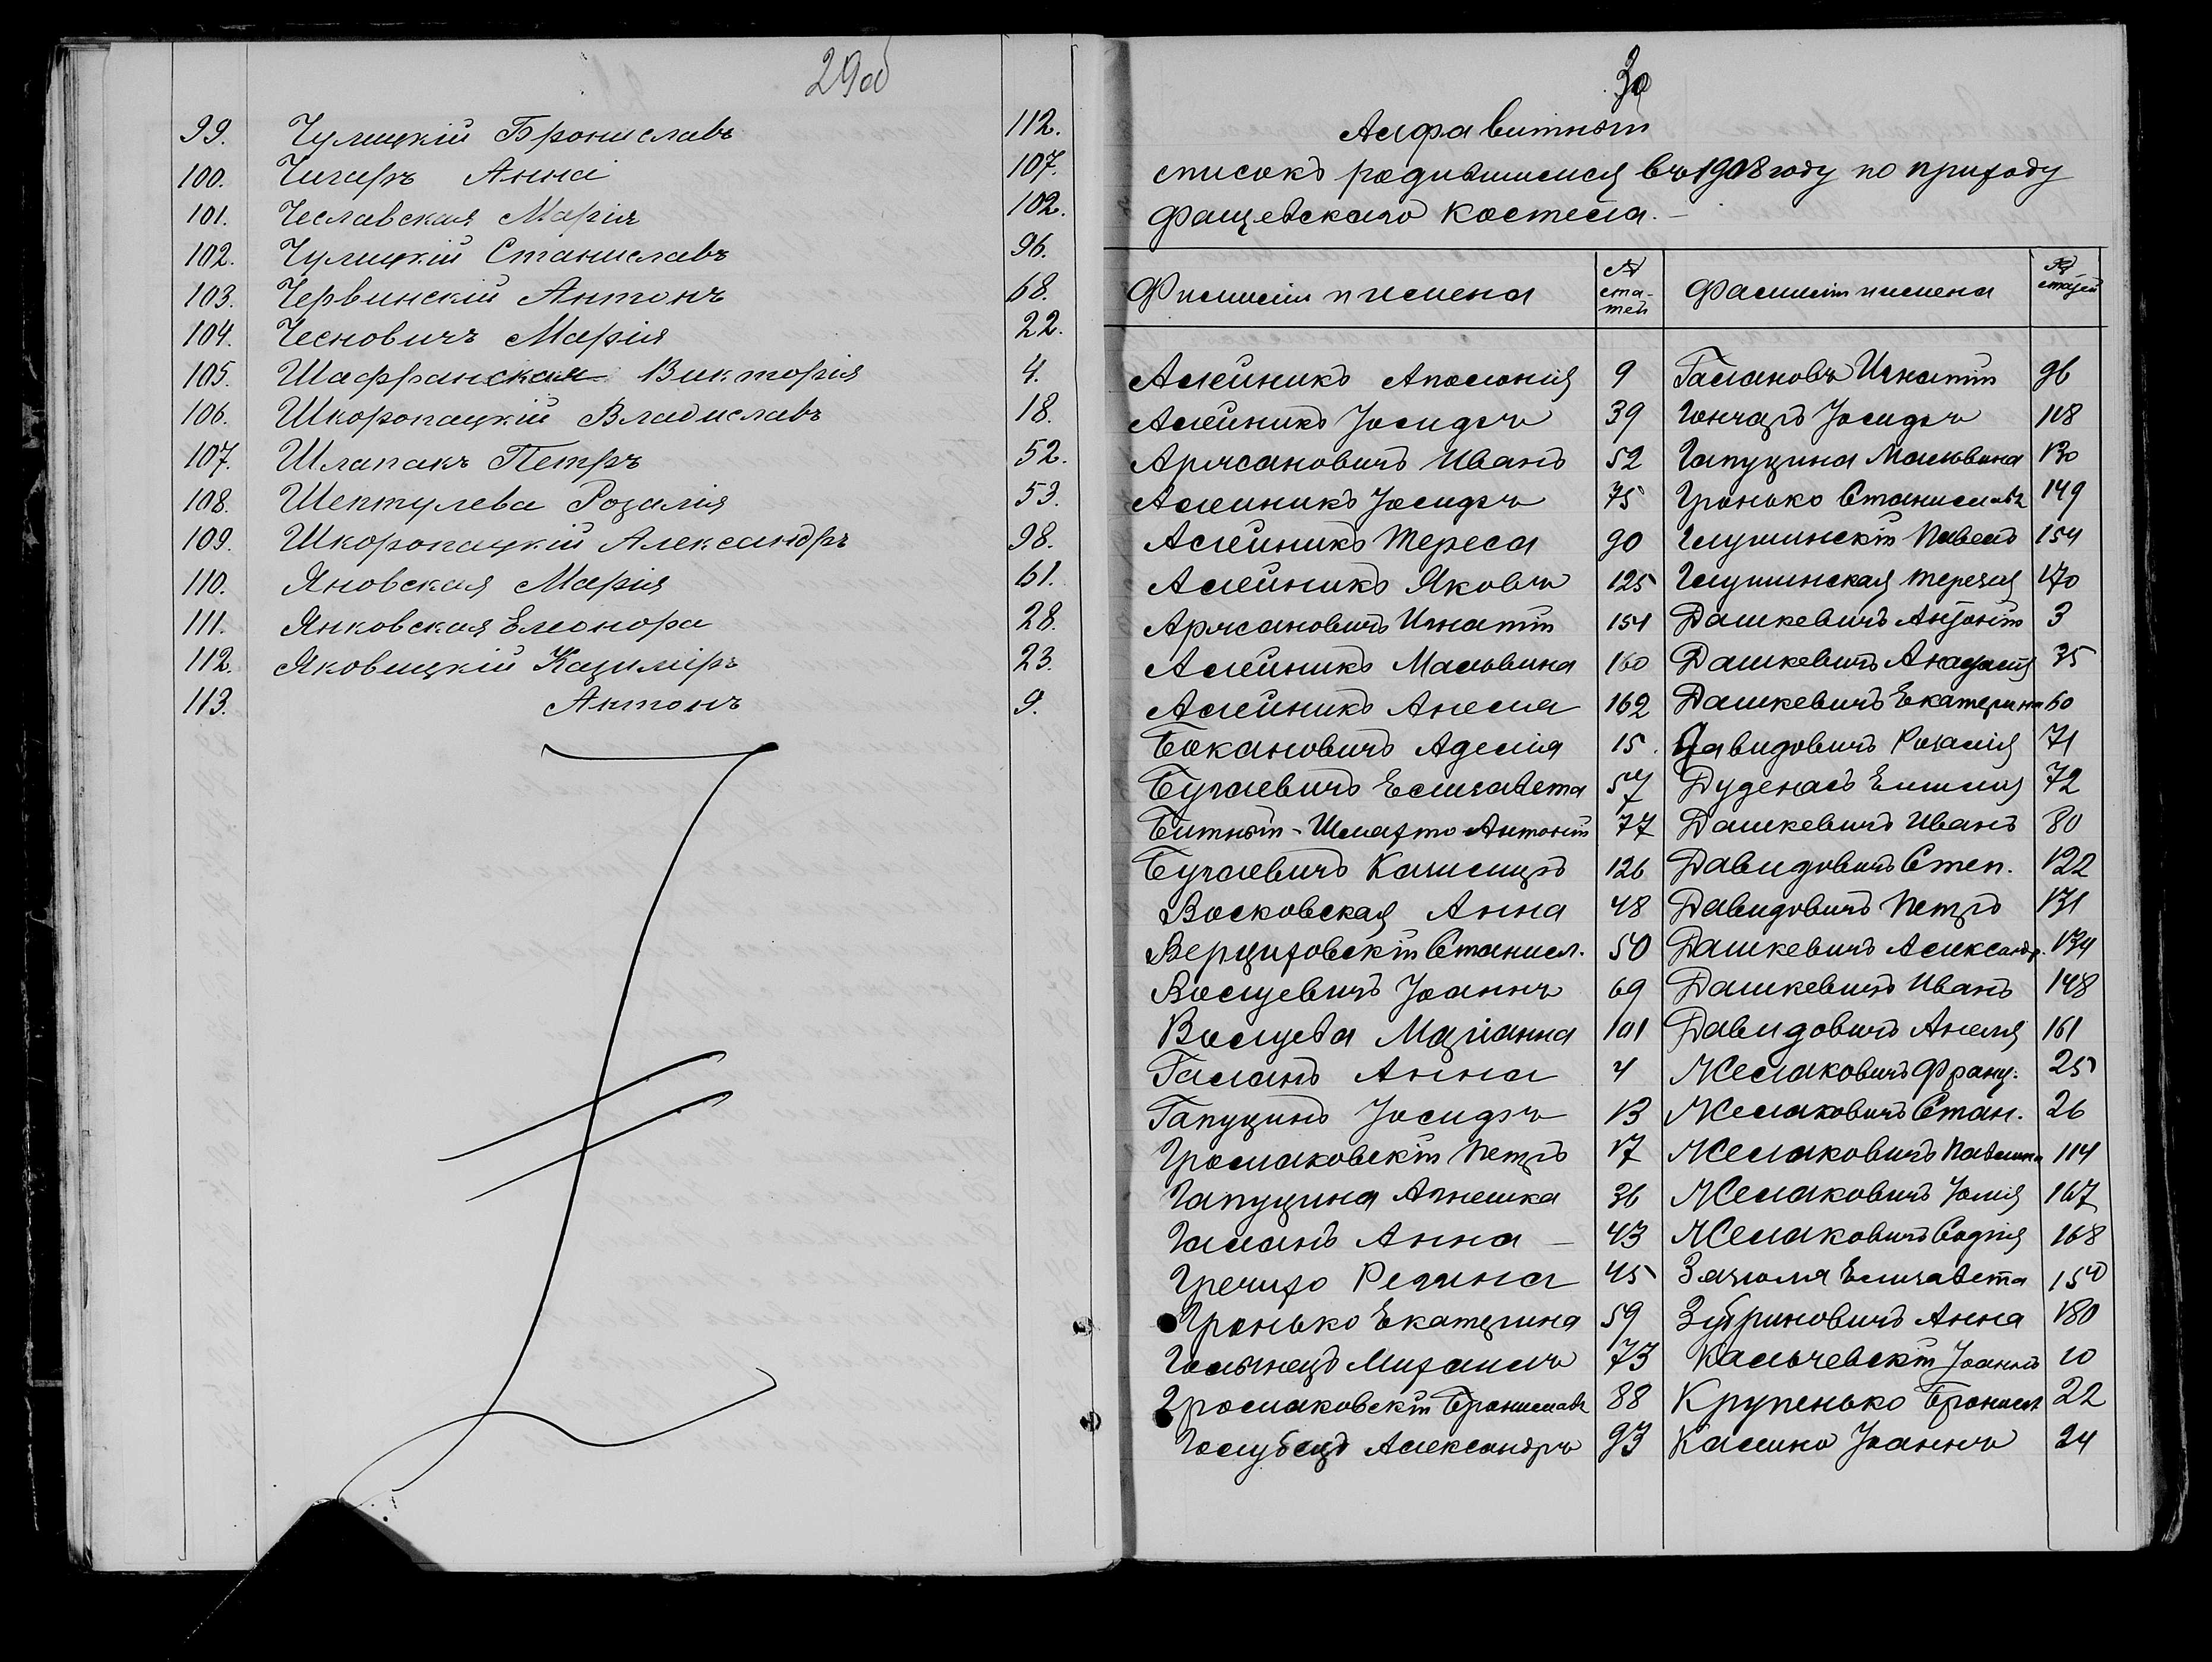 29об
99. Чулицкій Брониславъ 112.
100. Чигаръ Анна 107.
101. Чеславская Марія 102.
102. Чулицкій Станиславъ 96.
103. Червинскій Антонъ 68.
104. Чесновичъ Марія 22.
105. Шаффранская Викторія 4.
106. Шкоропацкій Владиславъ 18.
107. Шлапакъ Петръ 52.
108. Шептулева Розалія 53.
109. Шкоропацкій Александръ 98.
110. Яновская Марія 61.
111. Янковская Елеонора 28.
112. Яковицкій Казиміръ 23.
113. Антонъ 9.
30
Алфавитный
списокъ родившимися въ 1908 году по приходу
Фащевскаго костела.
Фамиліи и имена № статей Фамиліи и имена № статей
Алейникъ Аполонія 9 Галановъ Игнатій 96
Алейникъ Іосифъ 39 Гончаръ Іосифъ 118
Арясановичъ Иванъ 52 Гапуцина Мальвина 130
Алейникъ Іосифъ 75 Гронько Станиславъ 149
Алейникъ Тереса 90 Глушинскій Павелъ 154
Алейникъ Яковъ 125 Глушинская Терезія 170
Арясановичъ Игнатій 154 Дашкевичъ Антоній 3
Алейникъ Мальвина 160 Дашкевичъ 35
Алейникъ Анеля 162 Дашкевичъ Екатерина 60
Бокановичъ Аделія 15. Давидовичъ Розалія 71
Бугаевичъ Елизавета 57 Дуденасъ Емилія 72
Битный-Шляхто Антоній 77 Дашкевичъ Иванъ 80
Бугаевичъ Казимиръ 126 Давидовичъ Степ. 122
Восковская Анна 48 Давидовичъ Петръ 131
Верциховскій Станисл. 50 Дашкевичъ Александр. 134
Восцевичъ Іоаннъ 69 Дашкевичъ Иванъ 148
Марианна 101 Давидовичъ Анеля 161
Галанъ Анна 4 Желаковичъ Франц. 25
Гапуцинъ Іосифъ 13 Желаковичъ Стан. 26
Громаковскій Петръ 17 Желаковичъ Павлина 114
Гапуцина Агнешка 36 Желаковичъ Юлія 167
Галанъ Анна – 43 Желаковичъ Софія 168
Гречихо Регина 45 Елизавета 150
Гронько Екатерина 59 Зубриновичъ Анна 180
Голынецъ Михаилъ 73 Кальчевскій Іоаннъ 10
Громаковскій Брониславъ 88 Крупенько Бронисл 22
Голубецъ Александръ 93 Калино Іоаннъ 24